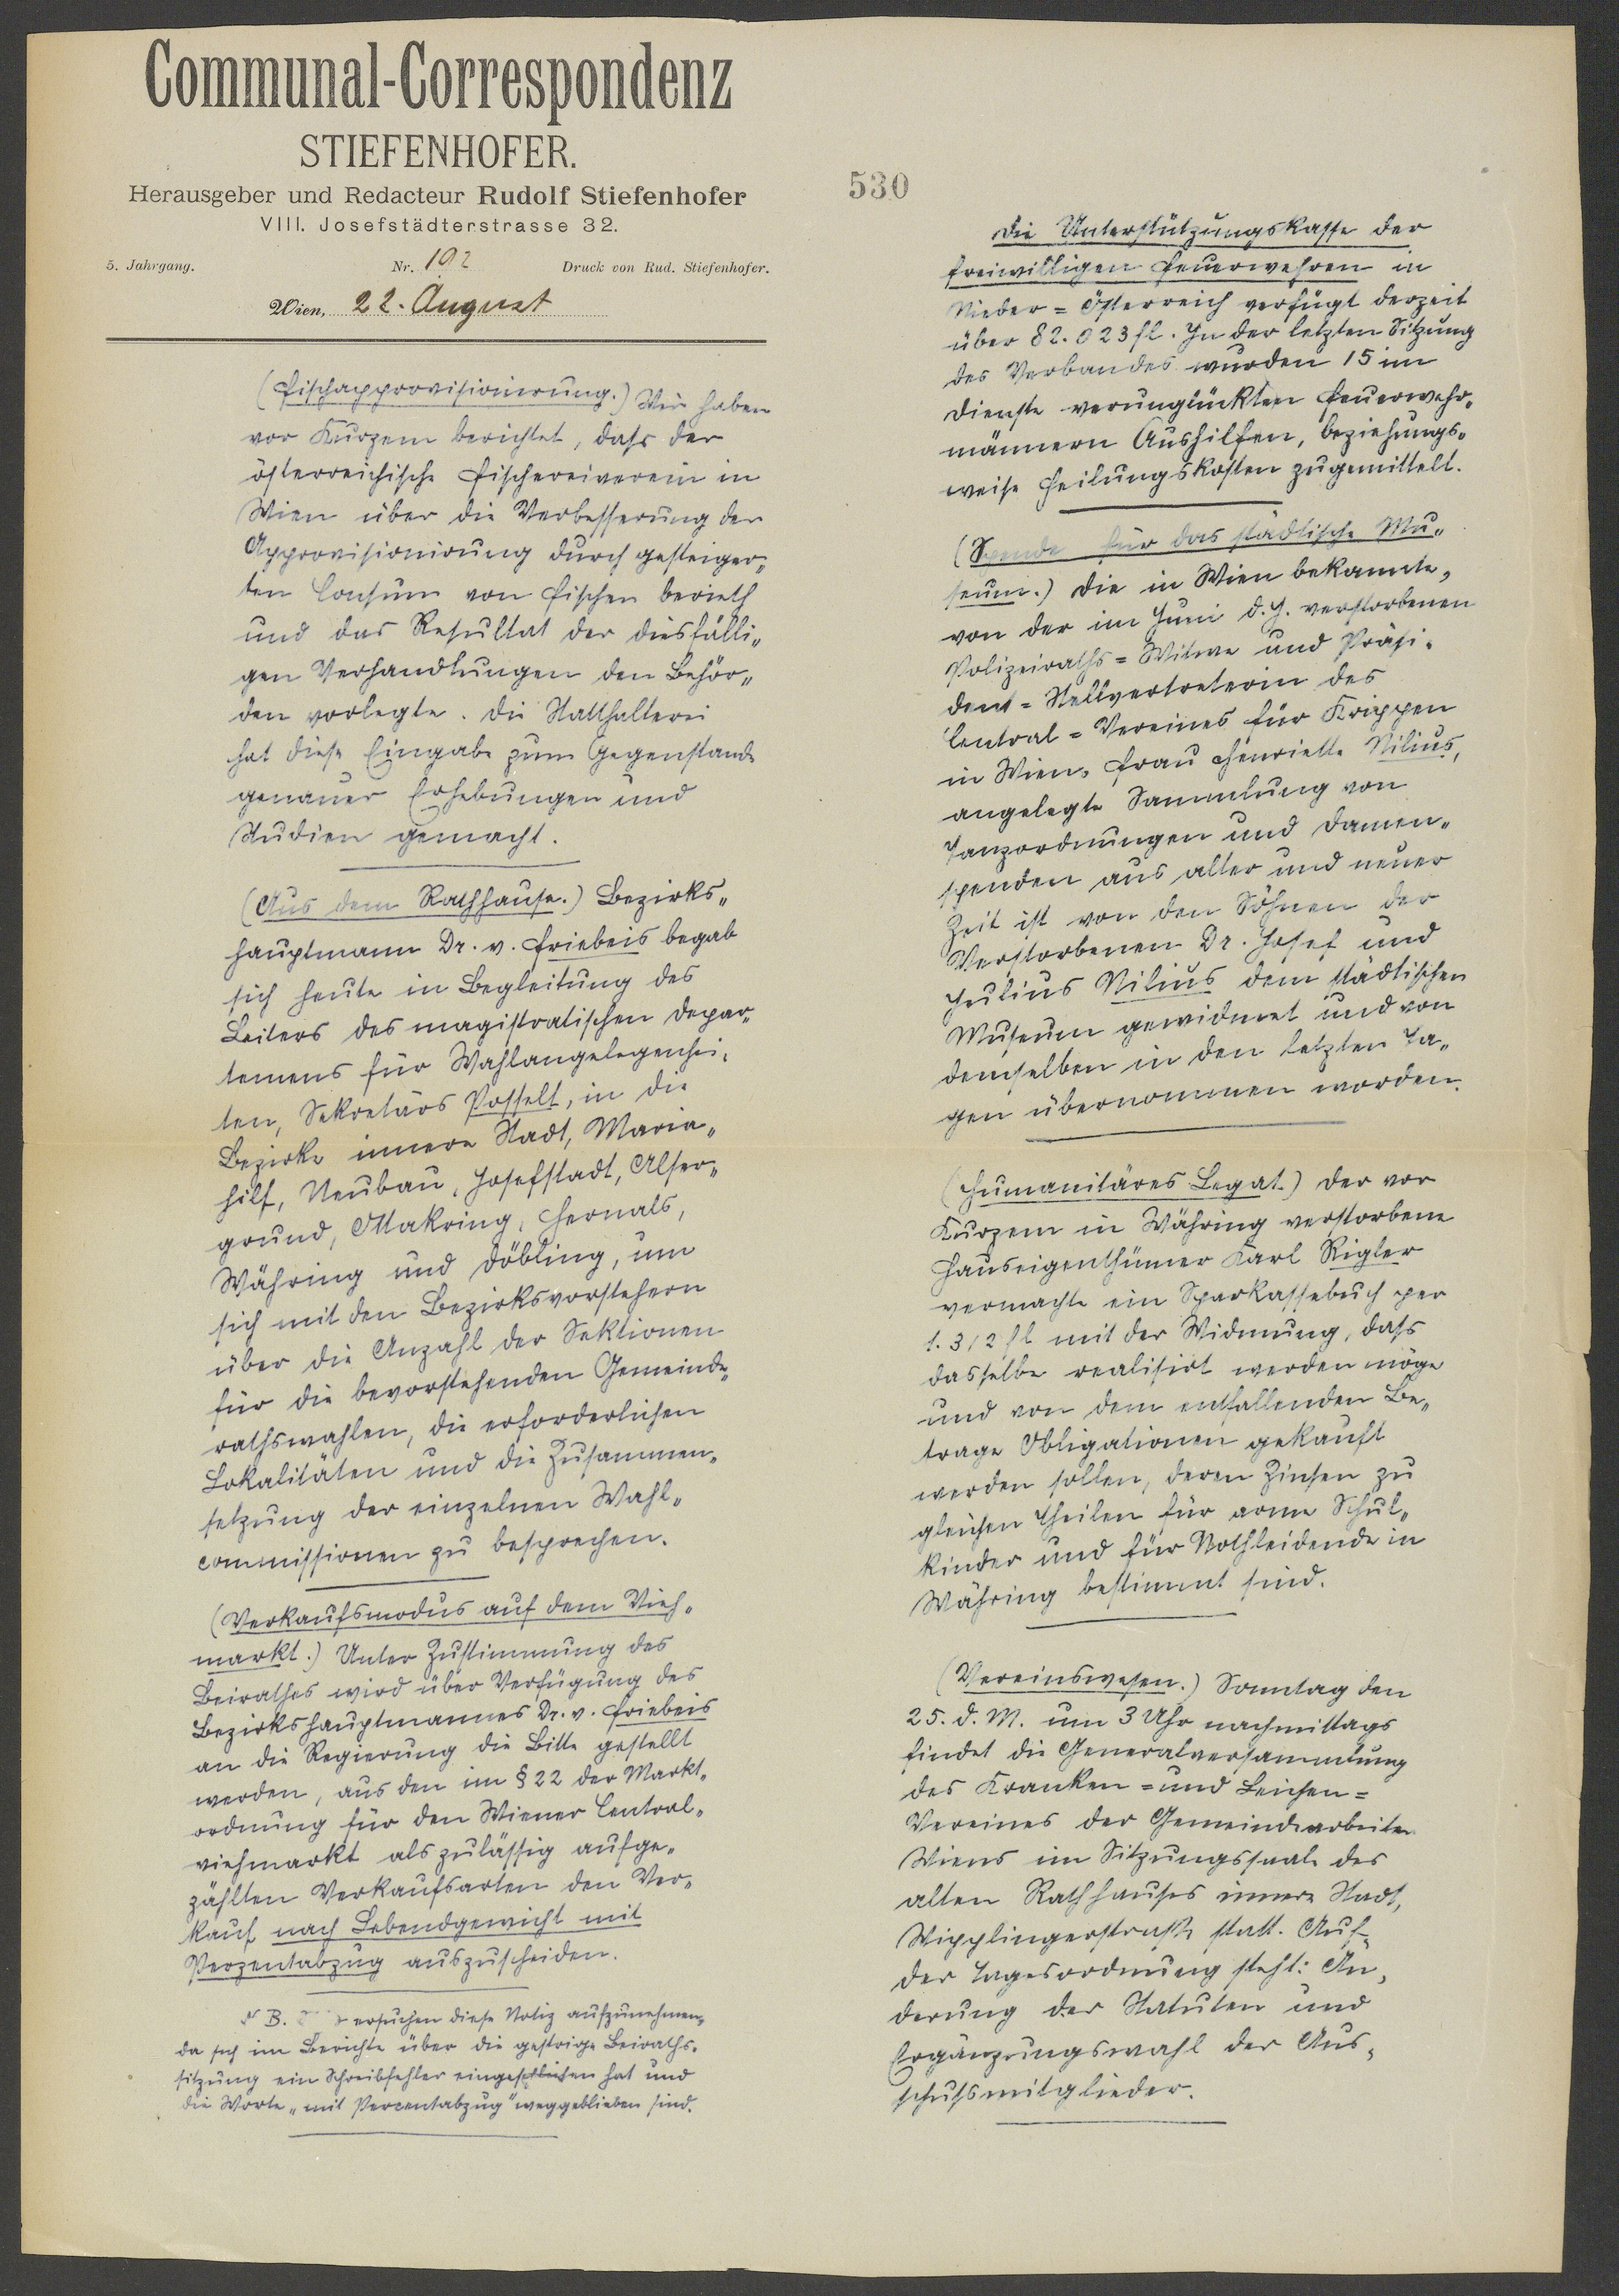 Communal-Correspondenz
STIEFENHOFER.
Herausgeber und Redacteur Rudolf Stiefenhofer
VIII. Josefstädterstrasse 32.
5. Jahrgang. Nr. 192 Druck von Rud. Stiefenhofer.
Wien, 22. August
(Fischapprovisionirung.) Wir haben
vor Kurzem berichtet, daſs der
österreichische Fischereiverein in
Wien über die Verbesserung der
Approvisionirung durch gesteiger„
ten Consum von Fischen berieth
und das Resultat der diesfälli„
gen Verhandlungen den Behör„
den vorlegte. Die Statthalterei
hat diese Eingabe zum Gegenstande
genauer Erhebungen und
Studien gemacht.
(Aus dem Rathhause.) Bezirks„
hauptmann Dr. v. Friebeis begab
sich heute in Begleitung des
Leiters des magistratischen Depar„
temens für Wahlangelegenhei„
ten, Sekretärs Posselt, in die
Bezirke innere Stadt, Maria„
hilf, Neubau, Josefstadt, Alser„
grund, Ottakring, Hernals,
Währing und Döbling, um
sich mit den Bezirksvorstehern
über die Anzahl der Sektionen
für die bevorstehenden Gemeinde„
rathswahlen, die erforderlichen
Lokalitäten und die Zusammen„
setzung der einzelnen Wahl„
commissionen zu besprechen.
(Verkaufsmodus auf dem Vieh„
markt.) Unter Zustimmung des
Beirathes wird über Verfügung des
Bezirkshauptmannes Dr. v. Friebeis
an die Regierung die Bitte gestellt
werden, aus den im § 22 der Markt„
ordnung für den Wiener Central„
viehmarkt als zulässig aufge„
zählten Verkaufsarten den Ver„
kauf nach Lebendgewicht mit
Perzentabzug auszuscheiden.
N B. ersuchen diese Notiz aufzunehmen,
da sich im Berichte über die gestrige Beiraths„
sitzung ein Schreibfehler eingeschlichen hat und
die Worte „mit Percentabzug" weggeblieben sind.
530
Die Unterstützungskasse der
freiwilligen Feuerwehren in
Nieder=Österreich verfügt derzeit
über 82.023 fl. In der letzten Sitzung
des Verbandes wurden 15 im
Dienste verunglückten Feuerwehr„
männern Aushilfen, beziehungs„
weise Heilungskosten zugemittelt.
(Spende für das städtische Mu„
seum.) Die in Wien bekannte,
von der im Juni d. J. verstorbenen
Polizeiraths=Witwe und Präsi„
dent=Stellvertreterin des
Central=Vereines für Krippen
in Wien, Frau Henriette Nilius,
angelegte Sammlung von
Tanzordnungen und Damen„
spenden aus alter und neuer
Zeit ist von den Söhnen der
Verstorbenen Dr. Josef und
Julius Nilius dem städtischen
Museum gewidmet und von
demselben in den letzten Ta„
gen übernommen worden.
(Humanitäres Legat.) Der vor
Kurzem in Währing verstorbene
Hauseigenthümer Karl Rigler
vermachte ein Sparkassebuch per
1.312 fl mit der Widmung, daſs
dasselbe realisirt werden möge
und von dem entfallenden Be„
trage Obligationen gekauft
werden sollen, deren Zinsen zu
gleichen Theilen für arme Schul„
kinder und für Nothleidende in
Währing bestimmt sind.
(Vereinswesen.) Sonntag den
25. d. M. um 3 Uhr nachmittags
findet die Generalversammlung
des Kranken=und Leichen=
Vereines der Gemeindearbeiter
Wiens im Sitzungssaale des
alten Rathhauses innere Stadt,
Wipplingerstraße statt. Auf
der Tagesordnung steht: Än„
derung der Statuten und
Ergänzungswahl der Aus„
schuſsmitglieder.